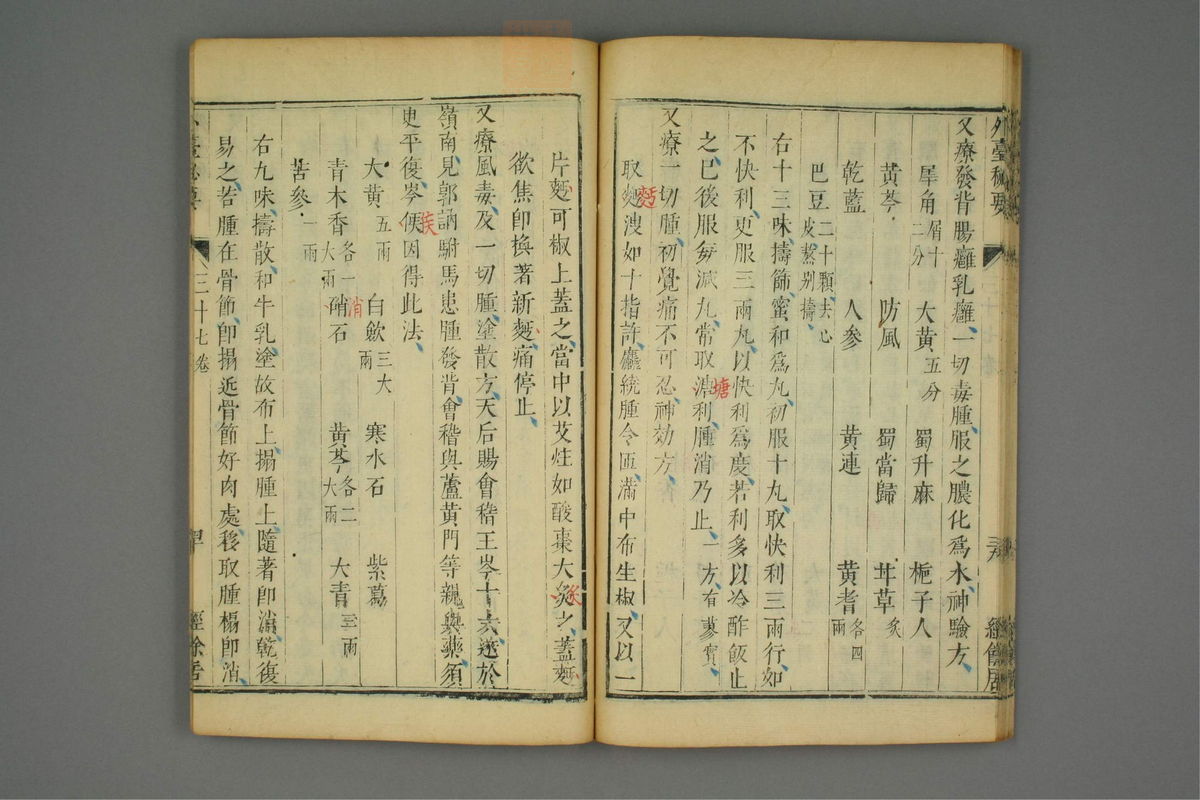 外臺秘要
三十七卷
經餘居
又療發背腸癰乳癰一切毒腫服之膿化爲水神驗方
犀角屑十二分 大黃五分 蜀升麻 梔子人
黃芩 防風 蜀當歸 甘草炙
乾藍 人參 黃連 黃耆各四兩
巴豆二十顆去心皮熬別擣
右十三味擣篩蜜和爲丸初服十丸取快利三兩行如
不快利更服三兩丸以快利爲度若利多以冷酢飯止
之已後服每減丸常取溏利腫消乃止一方有蓼實
塘
又療一切腫初覺痛不可忍神効方
麪
取麪溲如十指許麤繞腫令匝滿中布生椒又以一
片麪可椒上蓋之當中以艾炷如酸棗大灸之蓋麪
灸
欲焦卽換著新麪痛停止
又療風毒及一切腫塗散方天后賜會稽王岑十六遂於
嶺南見郭訥駙馬患腫發背會稽與蘆黃門等親與藥須
臾平復岑便因得此法
大黃五兩 白歛三大兩 寒水石 紫葛
青木香各一大兩 硝石 黃芩各二大兩 大青三兩
消
苦參一兩
右九味擣散和牛乳塗故布上搨腫上隨著卽消乾復
易之若腫在骨節卽搨近骨節好肉處移取腫搨卽消
外臺秘要
三十七卷
經餘居